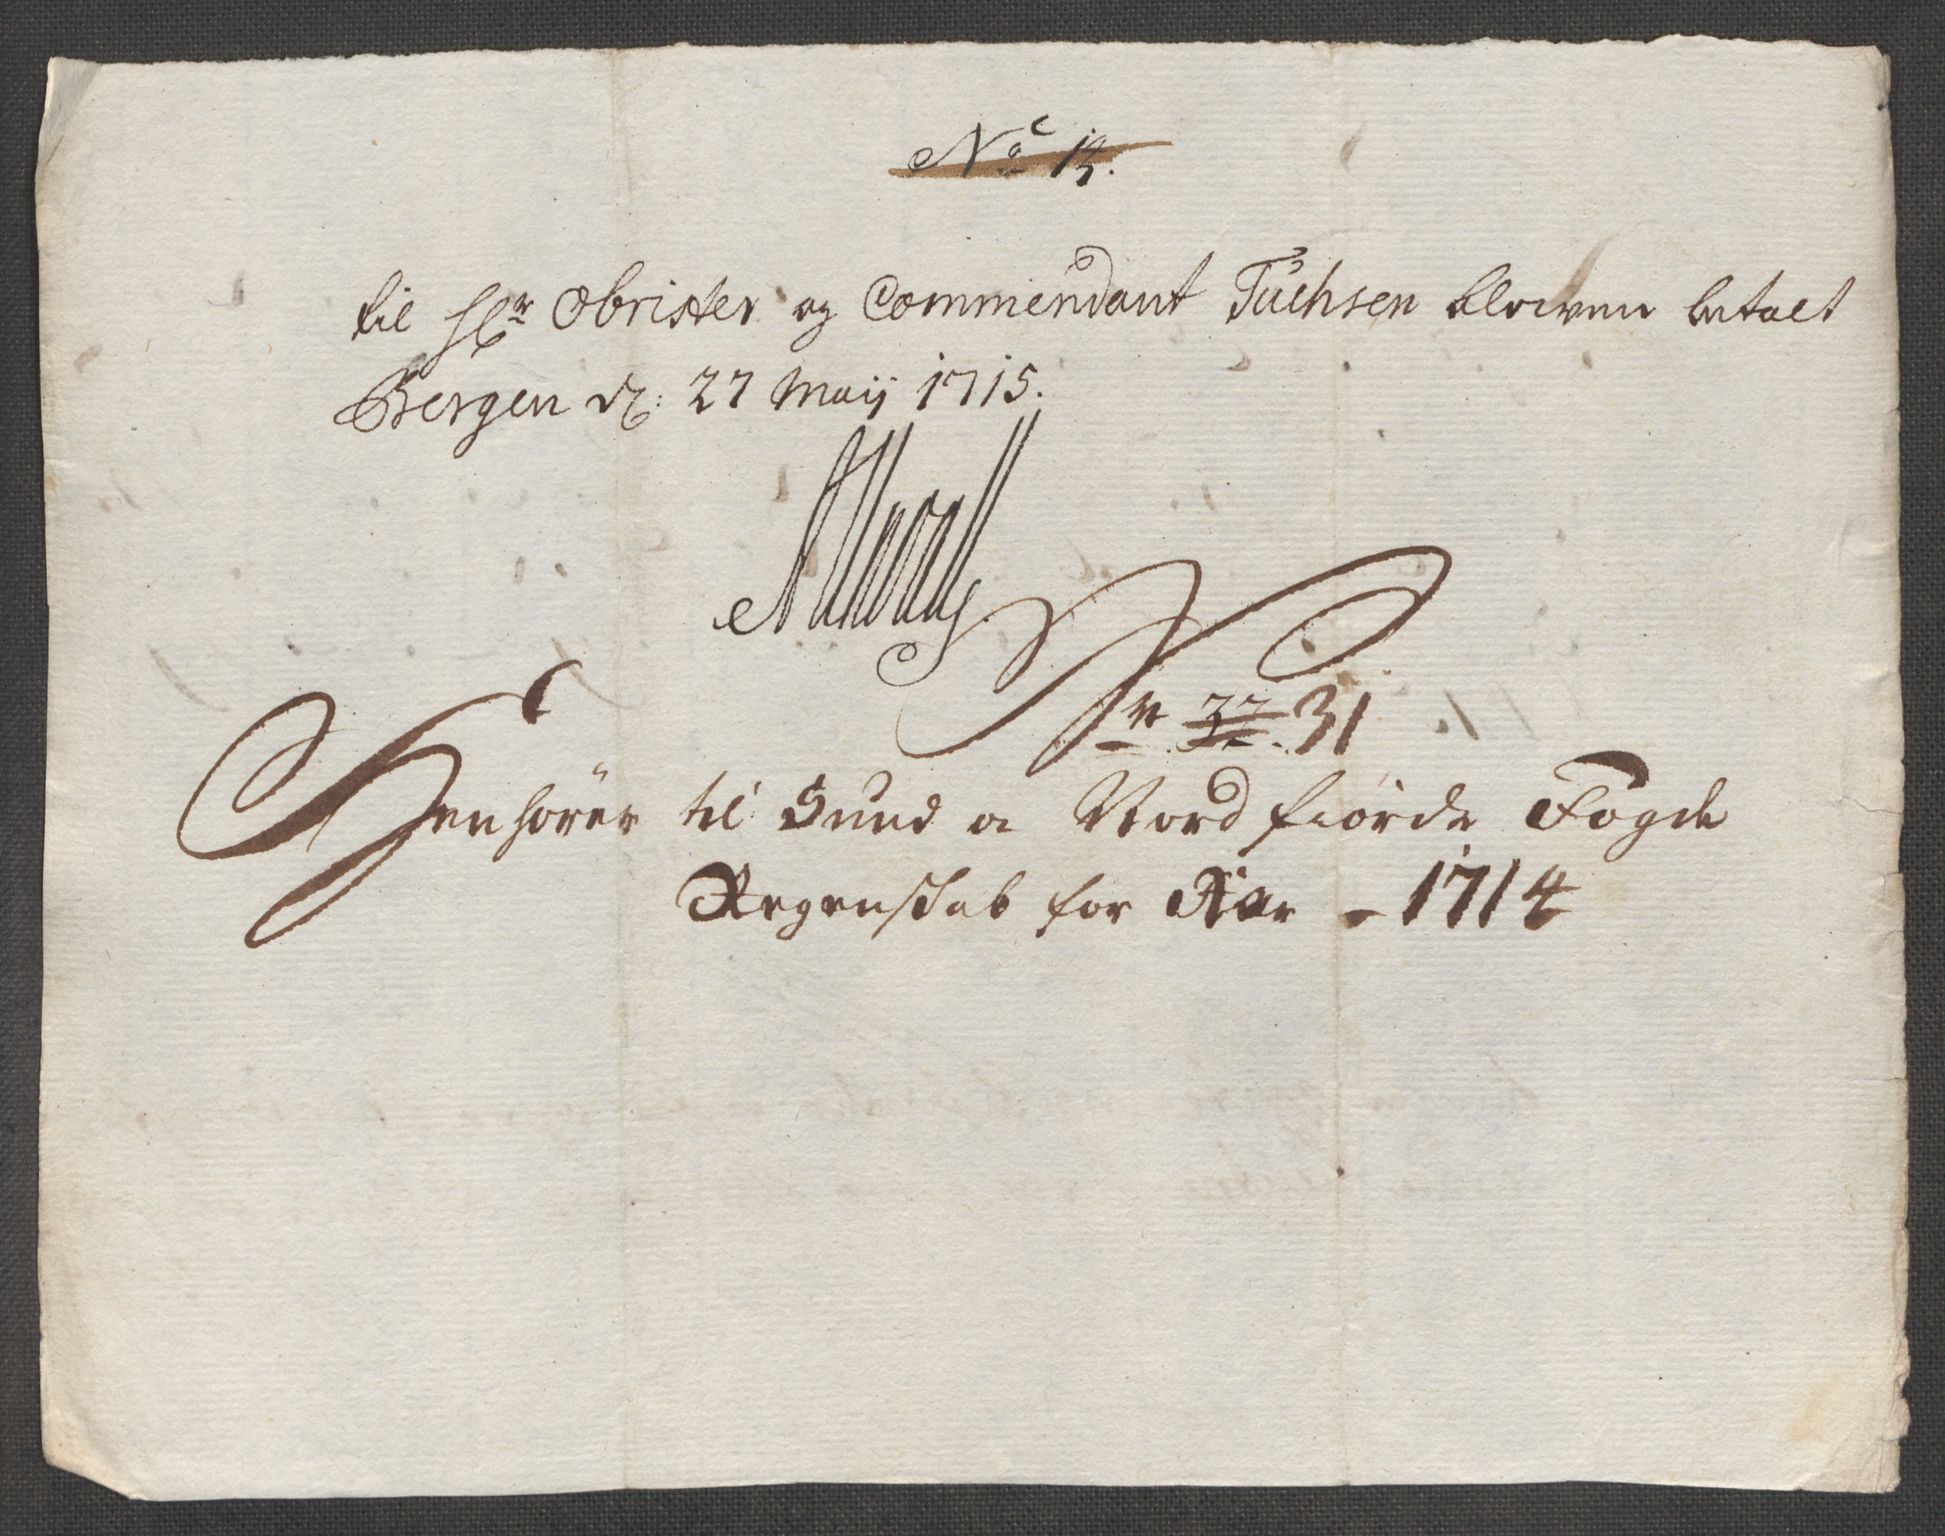 No 14.
til Hr Obrister og Commendant Tuchsen bleven betalt
Bergen d: 27 Maij 1715.
N 32. 31
Henhörer til Sund o Nordfiörde Fogde
Regenskab for Aar - 1714